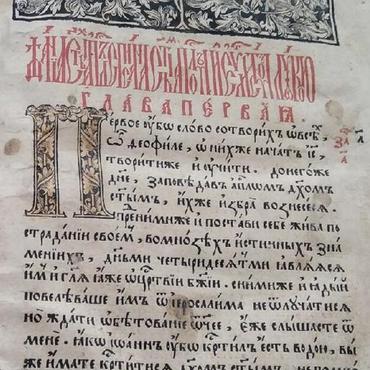 глава первая.
Первое ѹбѡ слово сотворихъ ѡ всѣ,
ѡ ѳеофиле, ѡ нихже начатъ іс҃,
творитиже и ѹчити. донегоже
дн҃е, заповѣдавъ апⷭ҇лѡмъ дх҃ом
ст҃ымъ, ихже избра вознесеся.
пренимиже и постави себе жива по
страданїи своем, вомнозѣхъ истинныхъ зна
менїихъ, дн҃ьми четыридесятми ꙗвляяся
имъ и гл҃я ꙗже ѡ цр҃ствїи бж҃їи. снимиже и ꙗдый
повелѣваше имъ ѿ їеросалима не ѿлучатися
но ждати ѡбѣтованїе ѿч҃ее, еже слышасте ѿ
мене. ꙗкѡ їѡаннъ ѹбѡ крⷭ҇тилъ есть водою, вы
же имате крⷭ҇титися дх҃омъ ст҃ымъ,